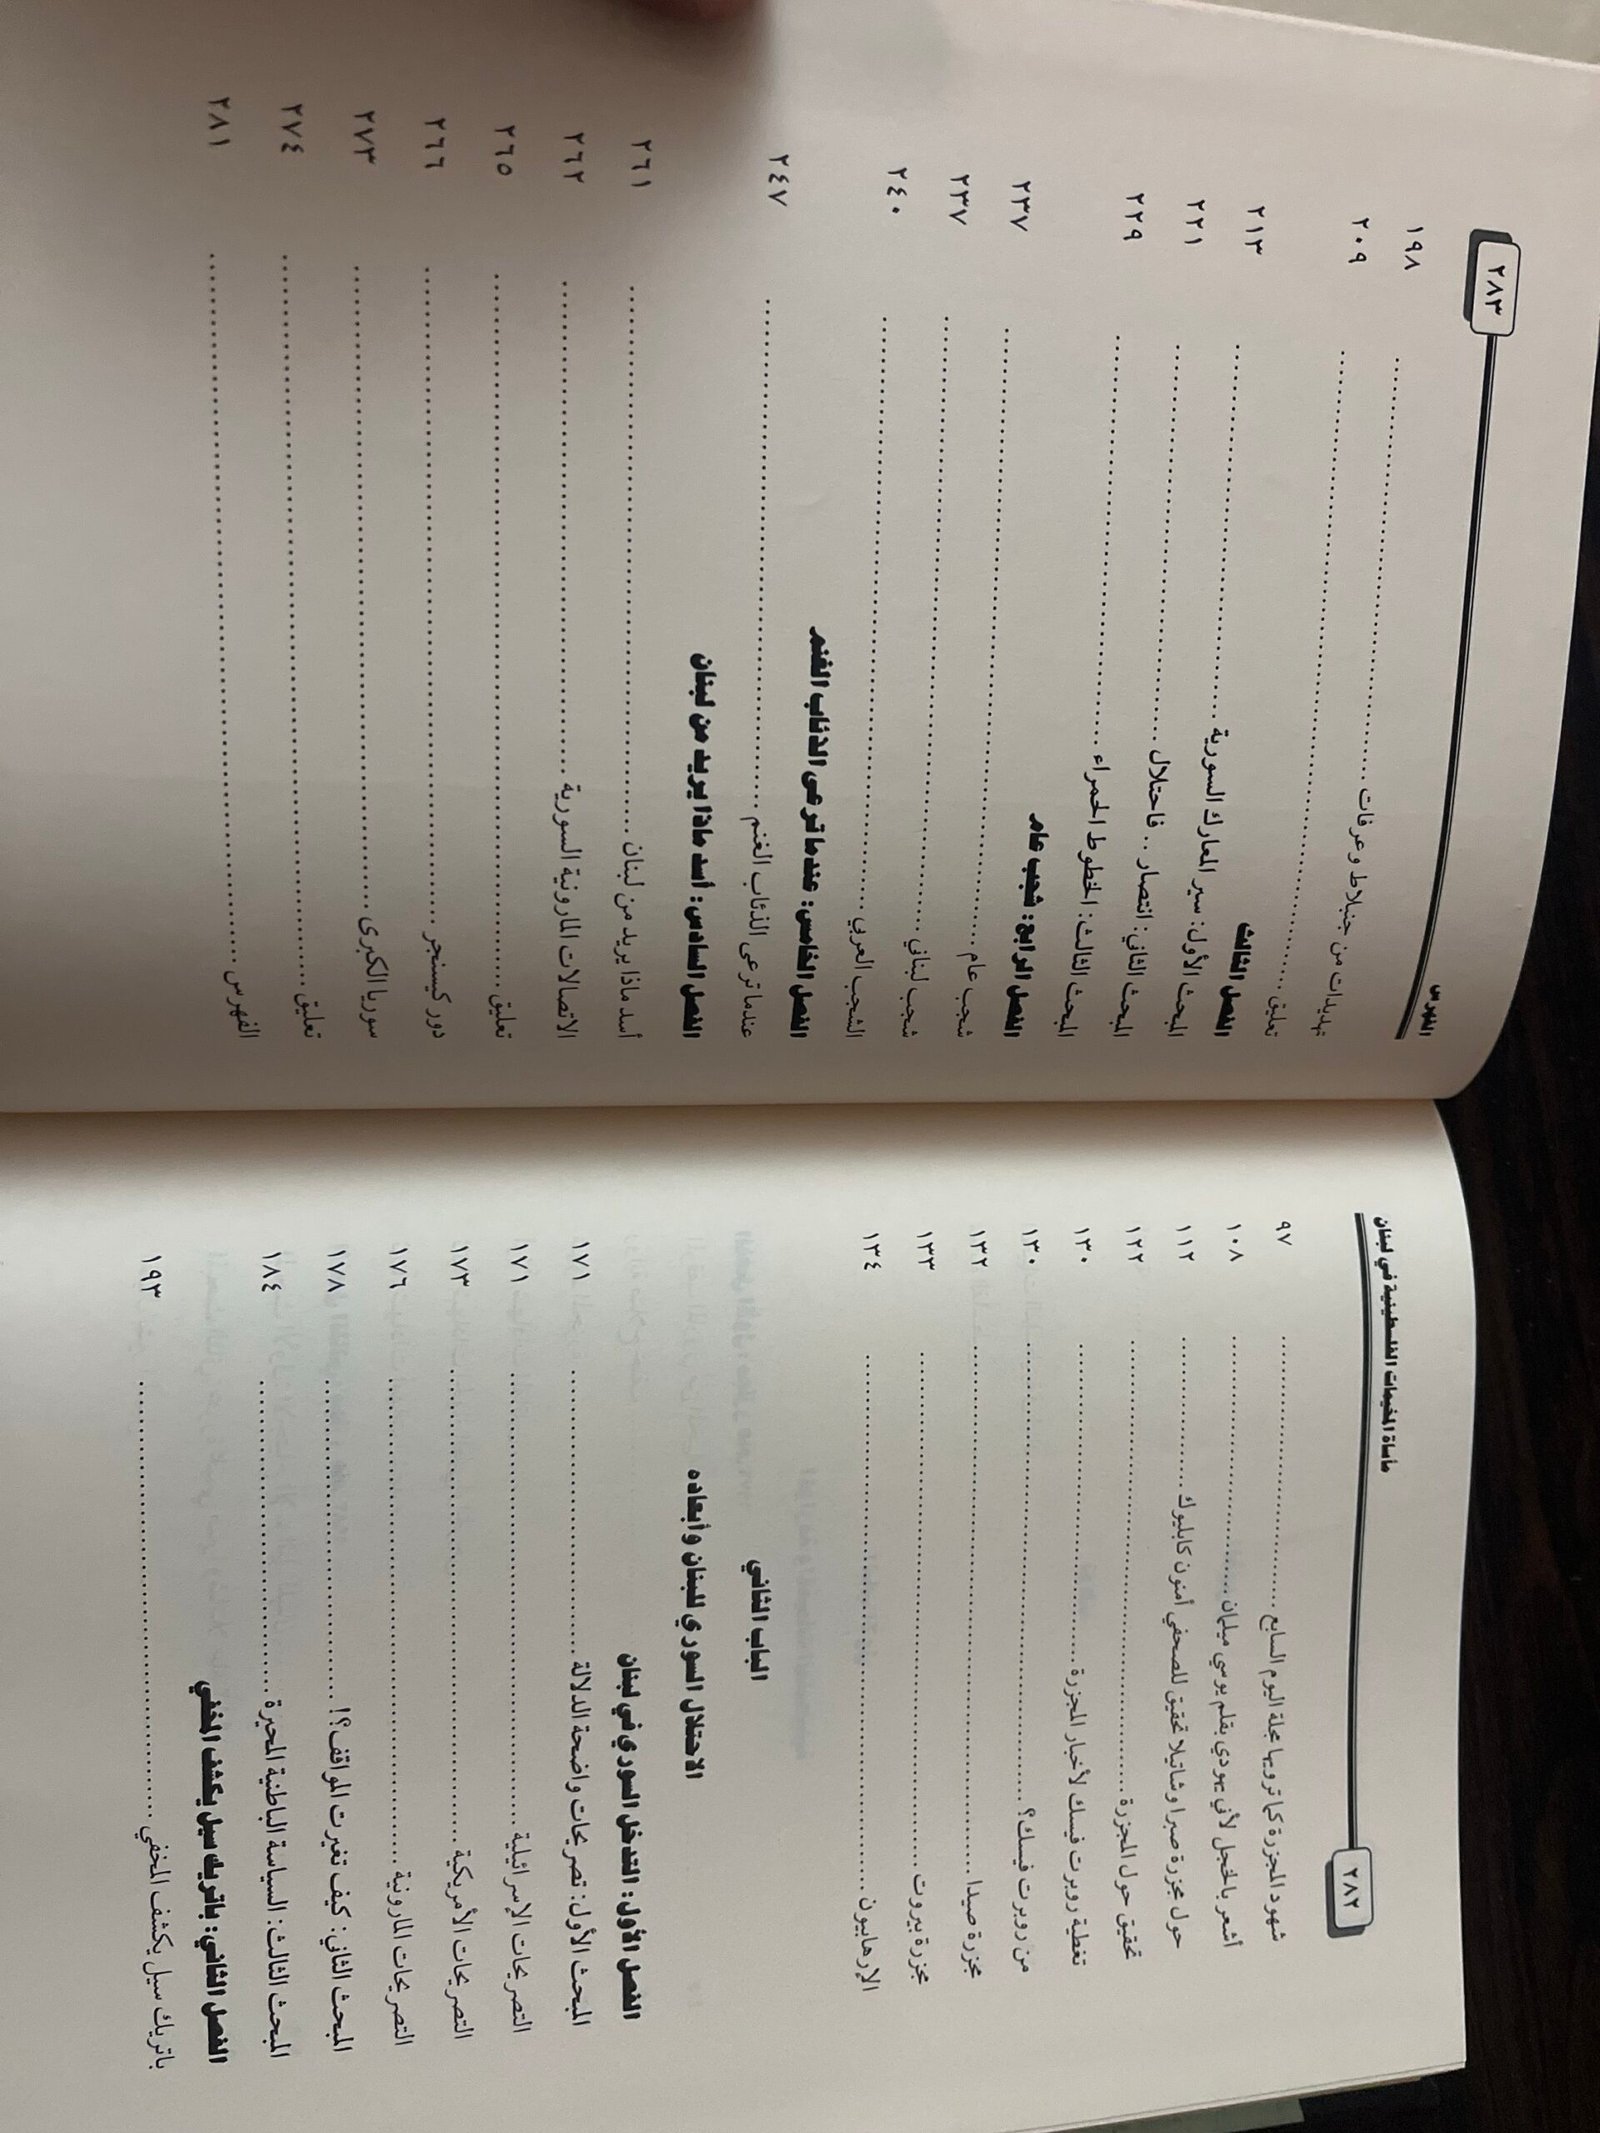 ٢٨٢
مأساة المخيمات الفلسطينية في لبنان
شهود المجزرة كما ترويها مجلة اليوم السابع ................ ٩٧
أشعر بالخجل لأني يهودي بقلم يوسي ميلمان ................ ١٠٨
حول مجزرة صبرا وشاتيلا تحقيق للصحفي أمنون كابليوك ................ ١١٢
تحقيق حول المجزرة ................ ١٢٢
تغطية روبرت فيسك لأخبار المجزرة ................ ١٣٠
من روبرت فيسك؟ ................ ١٣٠
مجزرة صيدا ................ ١٣٢
مجزرة بيروت ................ ١٣٣
الإرهابيون ................ ١٣٤
الباب الثاني
الاحتلال السوري للبنان وأبعاده
الفصل الأول: التدخل السوري في لبنان
المبحث الأول: تصريحات واضحة الدلالة ................ ١٧١
التصريحات الإسرائيلية ................ ١٧١
التصريحات الأمريكية ................ ١٧٣
التصريحات المارونية ................ ١٧٦
المبحث الثاني: كيف تغيرت المواقف؟! ................ ١٧٨
المبحث الثالث: السياسة الباطنية المحيرة ................ ١٨٤
الفصل الثاني: باتريك سيل يكشف المخفي
باتريك سيل يكشف المخفي ................ ١٩٣
الفهرس
٢٨٣
تهديدات من جنبلاط وعرفات ................ ١٩٨
تعليق ................ ٢٠٩
الفصل الثالث
المبحث الأول: سير المعارك السورية ................ ٢١٣
المبحث الثاني: انتصار .. فاحتلال ................ ٢٢١
المبحث الثالث: الخطوط الحمراء ................ ٢٢٩
الفصل الرابع: شجب عام
شجب عام ................ ٢٣٧
شجب لبناني ................ ٢٣٧
الشجب العربي ................ ٢٤٠
الفصل الخامس: عندما ترعى الذئاب الغنم
عندما ترعى الذئاب الغنم ................ ٢٤٧
الفصل السادس: أسد ماذا يريد من لبنان
أسد ماذا يريد من لبنان ................ ٢٦١
الاتصالات المارونية السورية ................ ٢٦٢
تعليق ................ ٢٦٥
دور كيسنجر ................ ٢٦٦
سوريا الكبرى ................ ٢٧٣
تعليق ................ ٢٧٤
الفهرس ................ ٢٨١